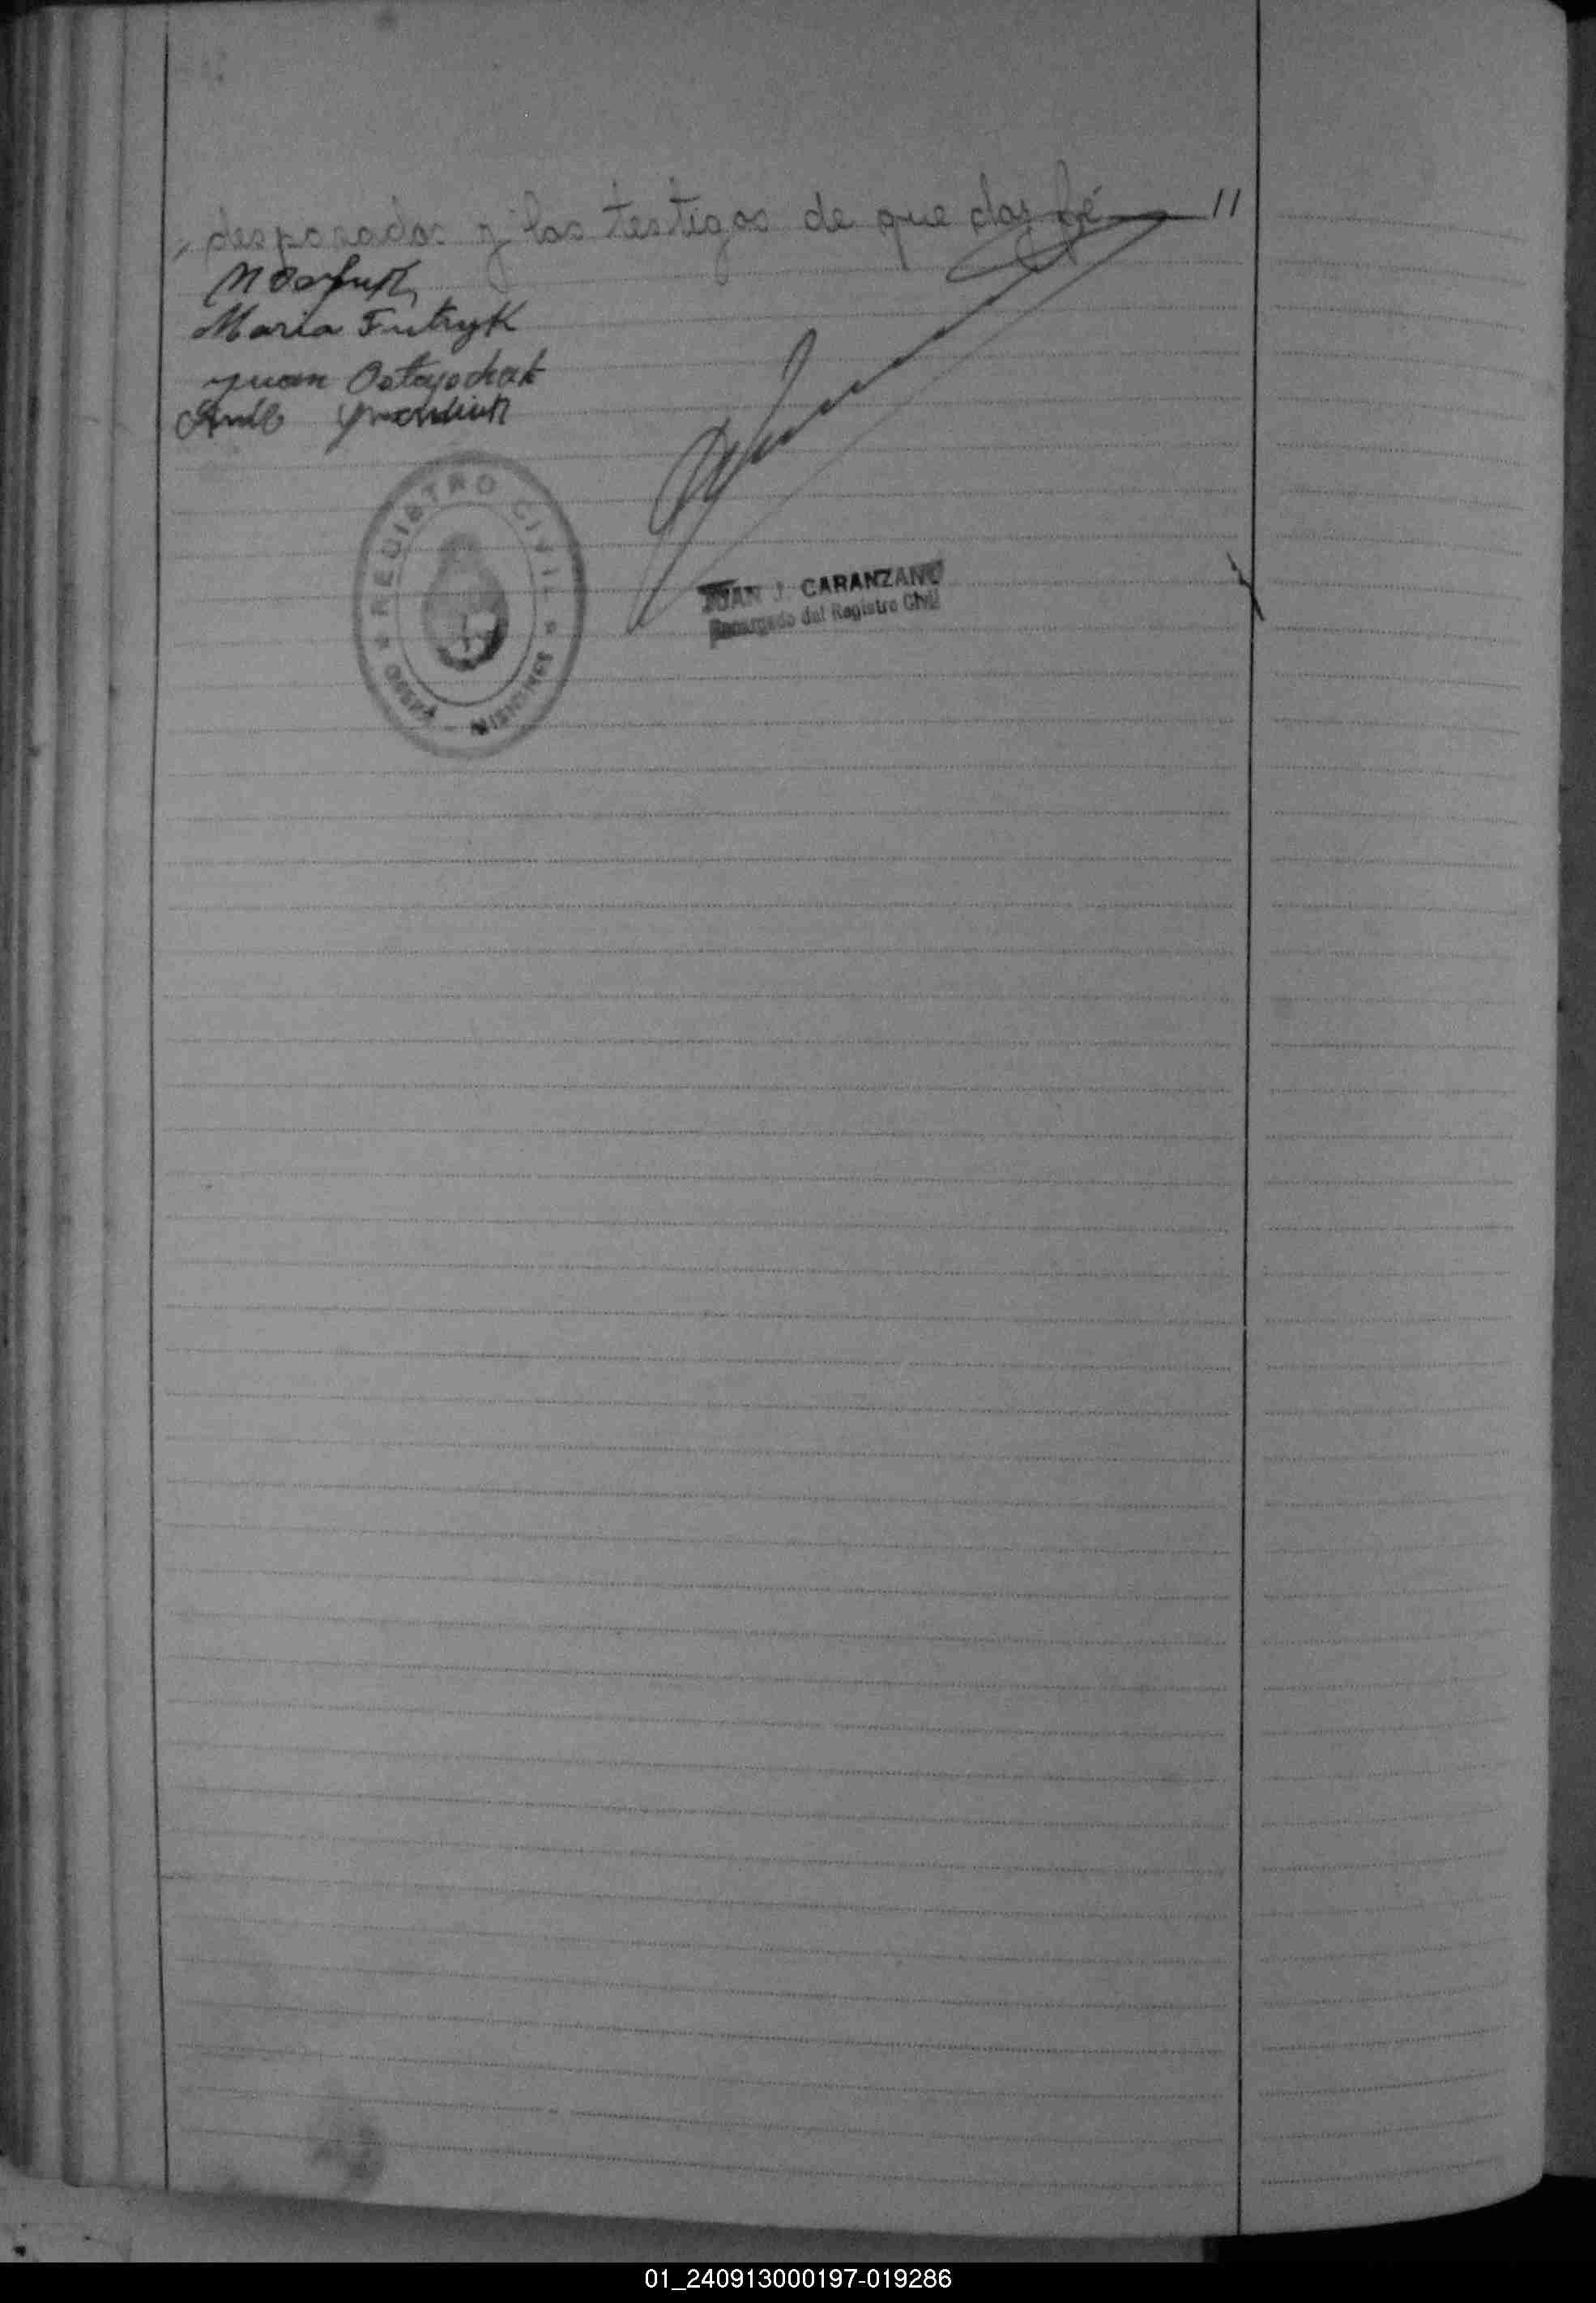 desposados y los testigos de que doy fé 11
Maria Futryk
Juan Ostapchuk
REGISTRO CIVIL
OBERA - MISIONES
JUAN J. CARANZANO
Encargado del Registro Civil
01_240913000197-019286